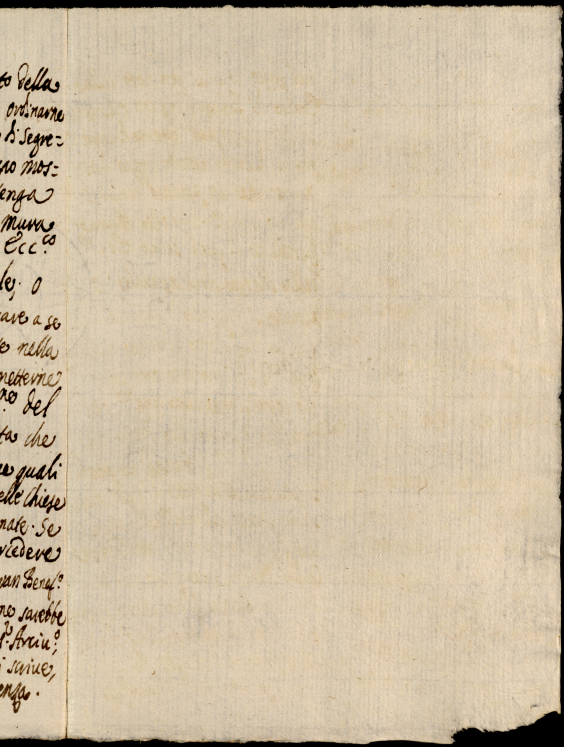 to della
ordinarne
di segre=
no mos=
enza
mura
Ecc.co
le; o
care a se
e nella
metterne
no del
ta che
e quali
elle chiese
nate. Se
cedere
Benef.o
ne sarebbe
Arciu.o,
scriue,
enza.